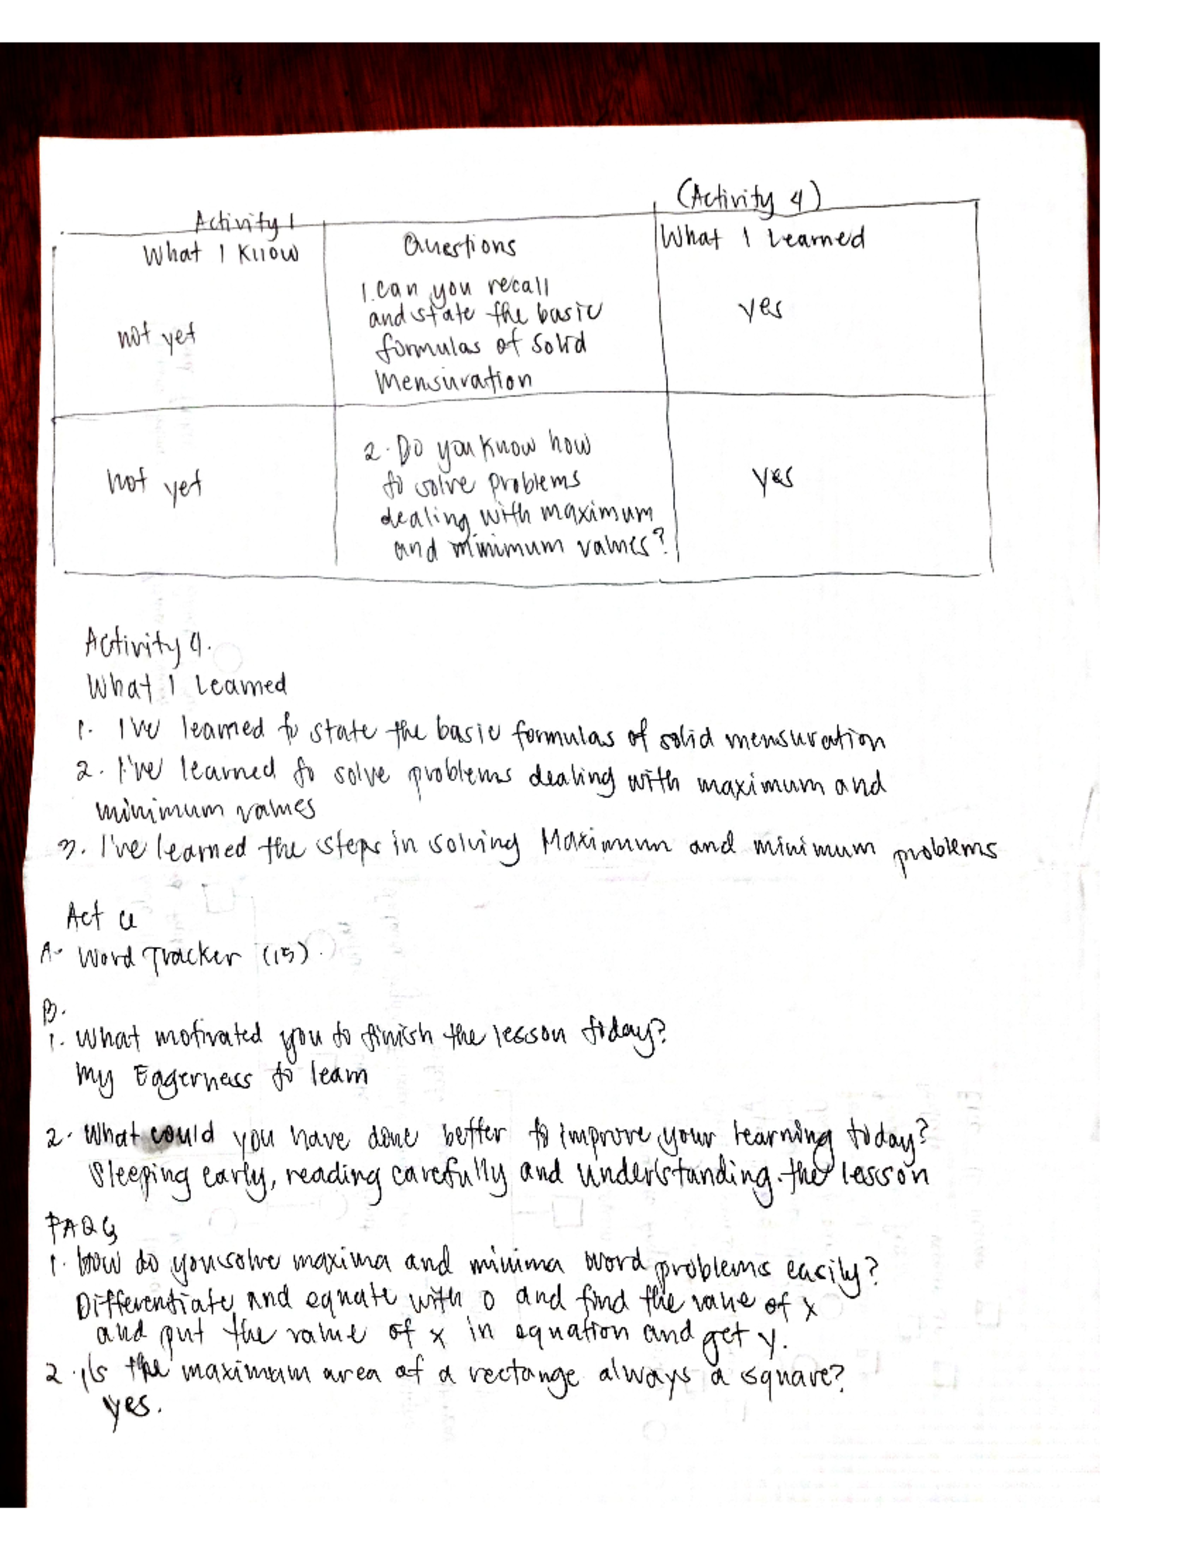 (Activity 4)
Activity 1
What I Know
Questions
What I Learned
not yet
1. Can you recall
and state the basic
formulas of Solid
Mensuration
yes
not yet
2. Do you know how
to solve problems
dealing with maximum
and minimum values?
yes
Activity 4.
What I Learned
1. I've learned to state the basic formulas of solid mensuration
2. I've learned to solve problems dealing with maximum and
minimum values
3. I've learned the steps in solving Maximum and minimum problems
Act
A. Word Tracker (15).
B.
1. What motivated you to finish the lesson today?
My Eagerness to learn
2. What could you have done better to improve your learning today?
Sleeping early, reading carefully and understanding the lesson
FAQs
1. How do you solve maxima and minima word problems easily?
Differentiate and equate with 0 and find the value of x
and put the value of x in equation and get y.
2. Is the maximum area of a rectange always a square?
yes.